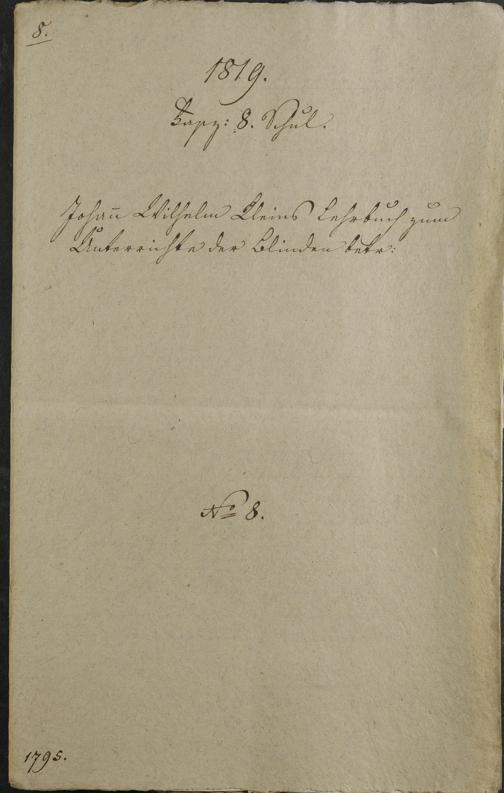 8.
1819.
8. Schul.
Johan̄ Wilhelm Kleins Lehrbuch zum
Unterrichte der Blinden betr:
No 8.
1795.